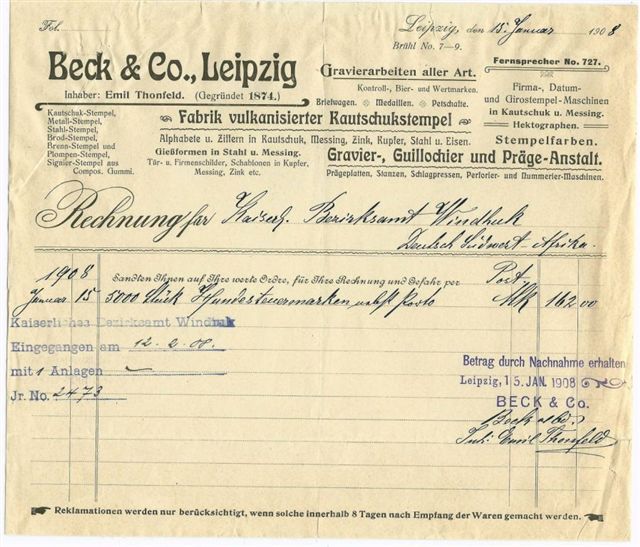 Fol.
Leipzig, den 15. Januar 1908
Brühl No. 7-9.
Beck & Co., Leipzig
Inhaber: Emil Thonfeld. (Gegründet 1874.)
Gravierarbeiten aller Art.
Kontroll-, Bier- und Wertmarken.
Briefwagen. Medaillen. Petschafte.
Fernsprecher No. 727.
Firma-, Datum-
und Girostempel-Maschinen
in Kautschuk u. Messing.
Hektographen.
Stempelfarben.
Kautschuk-Stempel,
Metall-Stempel,
Stahl-Stempel,
Brod-Stempel,
Brenn-Stempel und
Plompen-Stempel,
Signier-Stempel aus
Compos. Gummi.
Fabrik vulkanisierter Kautschukstempel
Alphabete u. Ziffern in Kautschuk, Messing, Zink, Kupfer, Stahl u. Eisen.
Gießformen in Stahl u. Messing.
Tür- u. Firmenschilder, Schablonen in Kupfer,
Messing, Zink etc.
Gravier-, Guillochier und Präge-Anstalt.
Prägeplatten, Stanzen, Schlagpressen, Perforier- und Nummerier-Maschinen.
Rechnung für Kaiserl. Bezirksamt Windhuk
Deutsch Südwest Afrika.
1908 Sandten Ihnen auf Ihre werte Ordre, für Ihre Rechnung und Gefahr per Post
Januar 15 5000 Stück Hundesteuermarken nebst Porto Mk 162 00
Kaiserliches Bezirksamt Windhuk
Eingegangen am 12. 2. 08.
mit 1 Anlagen
Jr. No. 2473
Betrag durch Nachnahme erhalten
Leipzig, 15. JAN. 1908
BECK & Co.
Beck & Co.
Inh: Emil Thonfeld
Reklamationen werden nur berücksichtigt, wenn solche innerhalb 8 Tagen nach Empfang der Waren gemacht werden.